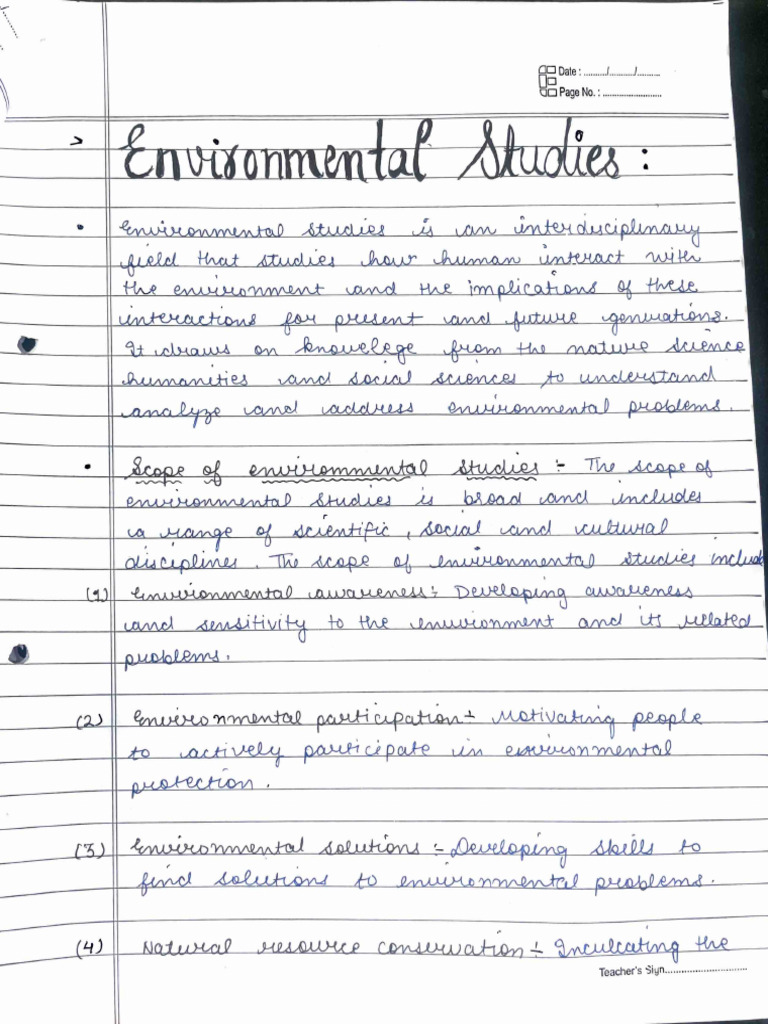 Date : ......../......../........
Page No. : ........................
> Environmental Studies :
• Environmental studies is an interdisciplinary
field that studies how human interact with
the environment and the implications of these
interactions for present and future generations.
It draws on knowelege from the nature science
humanities and social sciences to understand
analyze and address environmental problems.
• Scope of environmmental studies :- The scope of
environmental studies is broad and includes
a range of scientific, social and cultural
disciplines. The scope of environmental studies include
(1) Environmental awareness :- Developing awareness
and sensitivity to the environment and its related
problems.
(2) Environmental participation :- Motivating people
to actively participate in environmental
protection.
(3) Environmental solutions :- Developing skills to
find solutions to environmental problems.
(4) Natural resource conservation :- Inculcating the
Teacher's Sign..............................